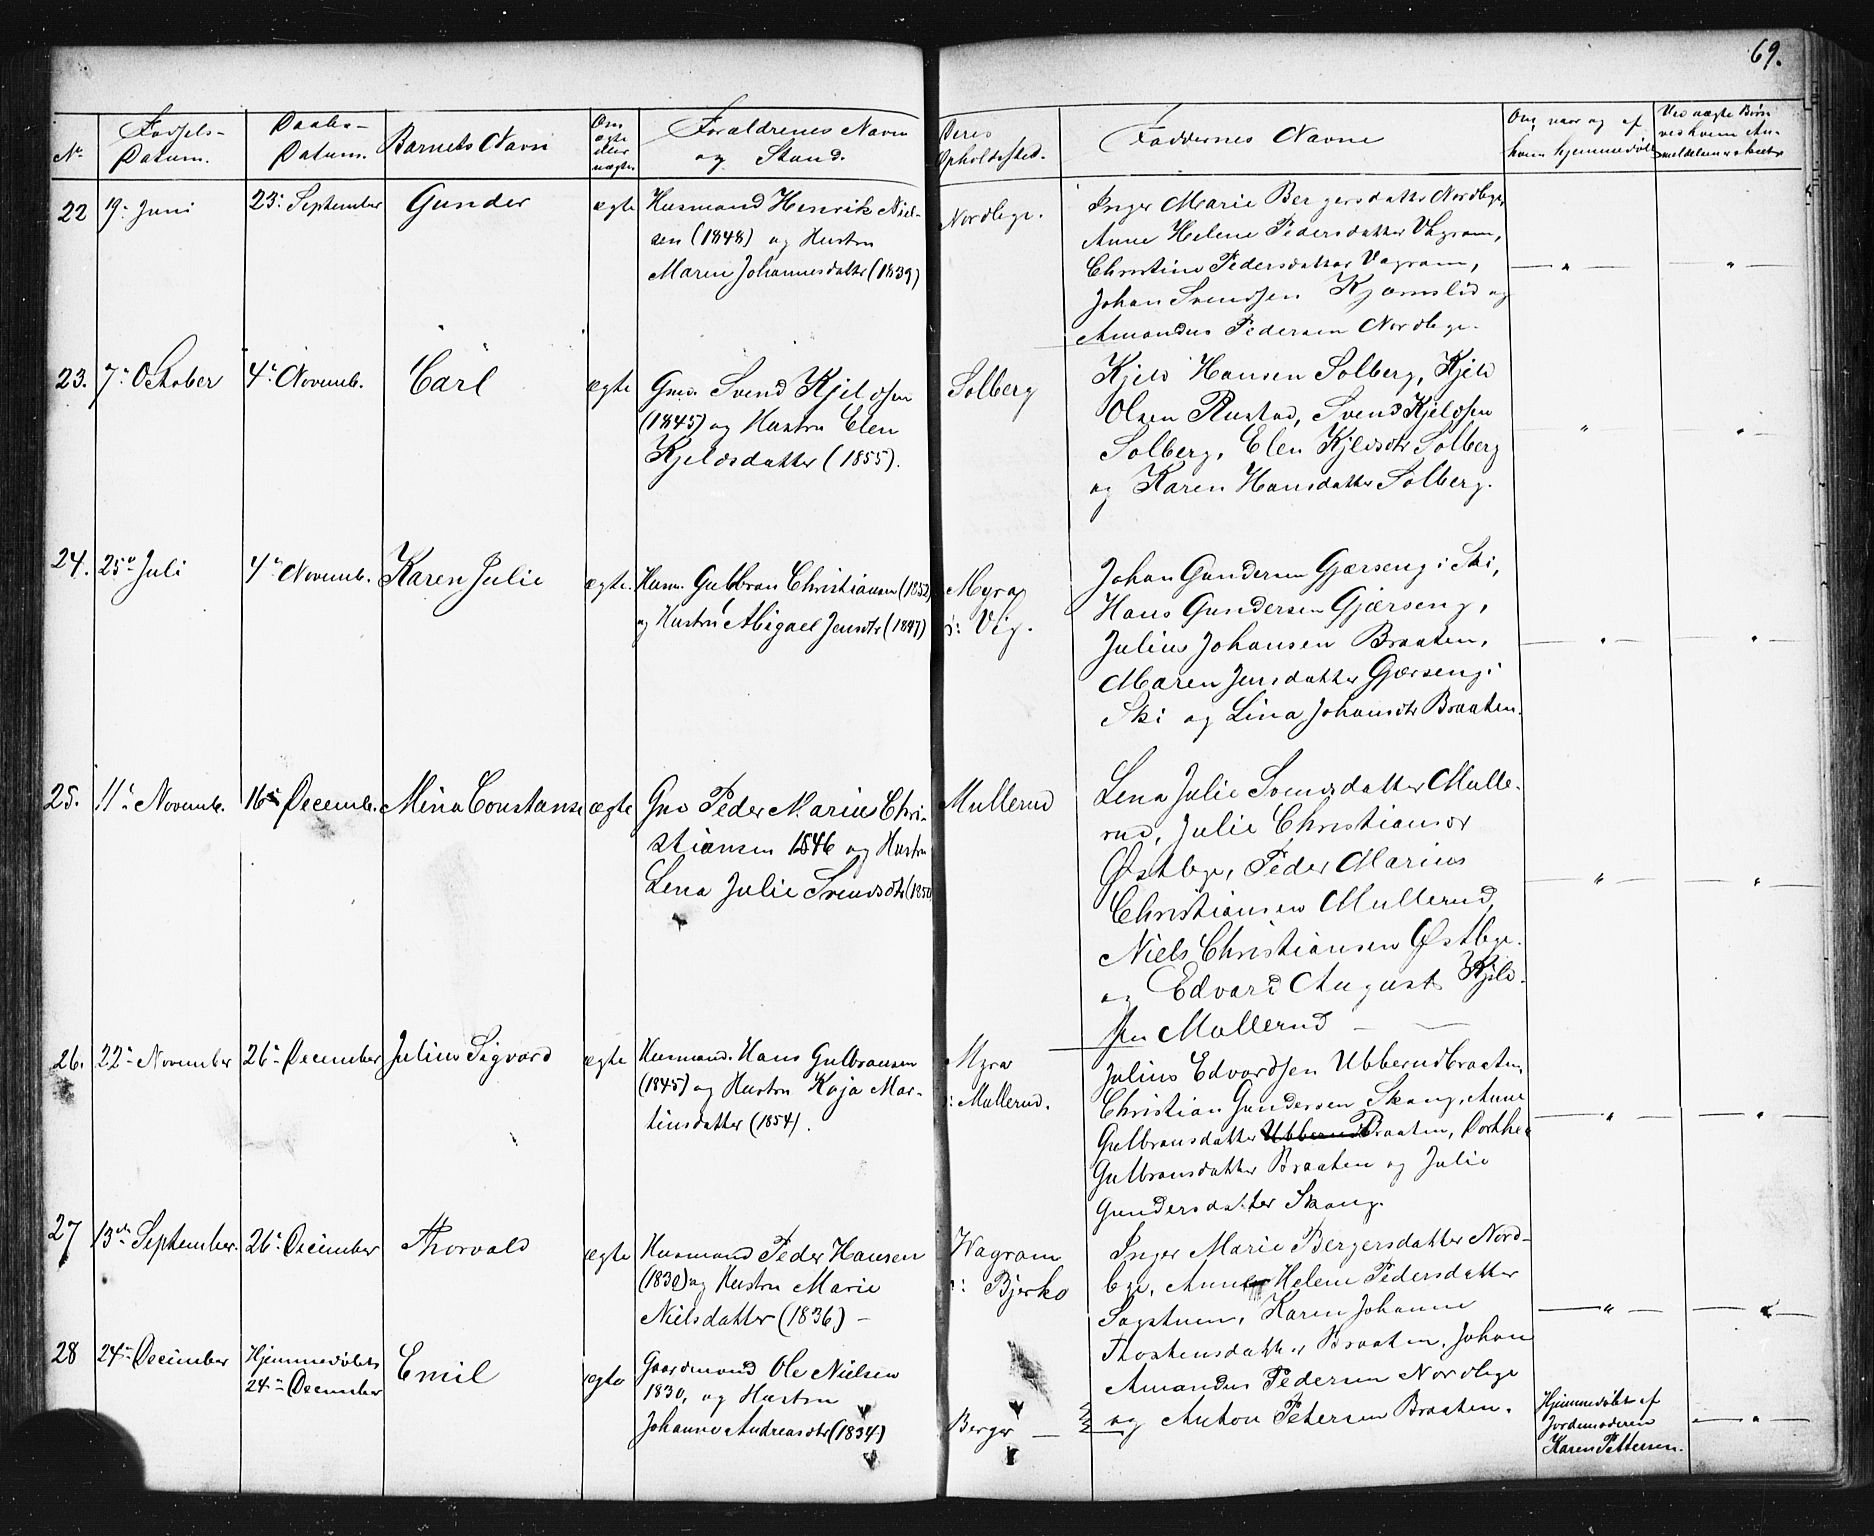 69.
No. Fødsels- Datum. Daabs- Datum. Barnets Navn Om ægte eller uægte Forældrenes Navn og Stand. Deres Opholdssted. Faddernes Navne Om, naar og af hvem hjemmedøbt Ved uægte Børn ved hvem Anmeldelsen er skeet
22 19de Juni 23de September Gunder ægte Husmand Henrik Niel-
sen (1848) og Hustru
Maren Johannesdatter (1839)
Nordbye.
Inger Marie Bergersdatter Nordbye,
Anne Helene Pedersdatter Vagram,
Christine Pedersdatter Vagram,
Johan Svendsen Kjærnslid og
Amandus Pedersen Nordbye.
23. 7de Oktober 4de Novemb. Carl ægte Grd. Svend Kjeldsen
(1845) og Hustru Elen
Kjeldsdatter (1855).
Solberg
Kjeld Hansen Solberg, Kjeld
Olsen Rustad, Svend Kjeldsen
Solberg, Elen Kjeldsdtr Solberg
og Karen Hansdatter Solberg.
24. 25de Juli 4de Novemb. Karen Julie ægte. Husm. Gulbran Christiansen (1852)
og Hustru Abigael Jensdtr (1847)
Myra
i: Vig.
Johan Gundersen Gjærseng i Ski,
Hans Gundersen Gjærseng,
Julius Johansen Braaten,
Maren Jensdatter Gjærseng i
Ski og Lina Johansdtr Braaten.
25. 11te Novemb. 16de Decemb. Mina Constanse ægte Grd Peder Marius Chri-
stiansen 1846 og Hustru
Lena Julie Svendsdtr (1850
Mullerud
Lena Julie Svendsdatter Mulle-
rud, Julie Christiansdr
Østbye, Peder Marius
Christiansen Mullerud,
Niels Christiansen Østbye.
og Edvard August Kjeld-
sen Mullerud —
26. 22de November 26de December Julius Sigvard ægte Husmand. Hans Gulbransen
(1845) og Hustru Kaja Mar-
tinsdatter (1854).
Myra
i: Mullerud.
Julius Edvardsen Ubberudbraaten,
Christian Gundersen Skaug, Anne
Gulbransdatter Ubberud Braaten, Dorthe
Gulbransdatter Braaten og Julie
Gundersdatter Skaug.
27 13de September. 26de December Thorvald ægte Husmand Peder Hansen
(1830) og Hustru Marie
Nielsdatter (1836) —
Wagram
i: Bjerke
Inger Marie Bergersdatter Nord-
bye, Anne Helene Pedersdatter
Sagstuen, Karen Johanne
Thostensdatter Braaten, Johan
Amandus Pedersen Nordbye
og Anton Petersen Braaten.
28 24de December Hjemmedøbt
24de December Emil ægte Gaardmand Ole Nielsen
1830, og Hustru
Johanne Andreasdtr (1834)
Berger —
Hjemmedøbt af
Jordemoderen
Karen Pettersen.